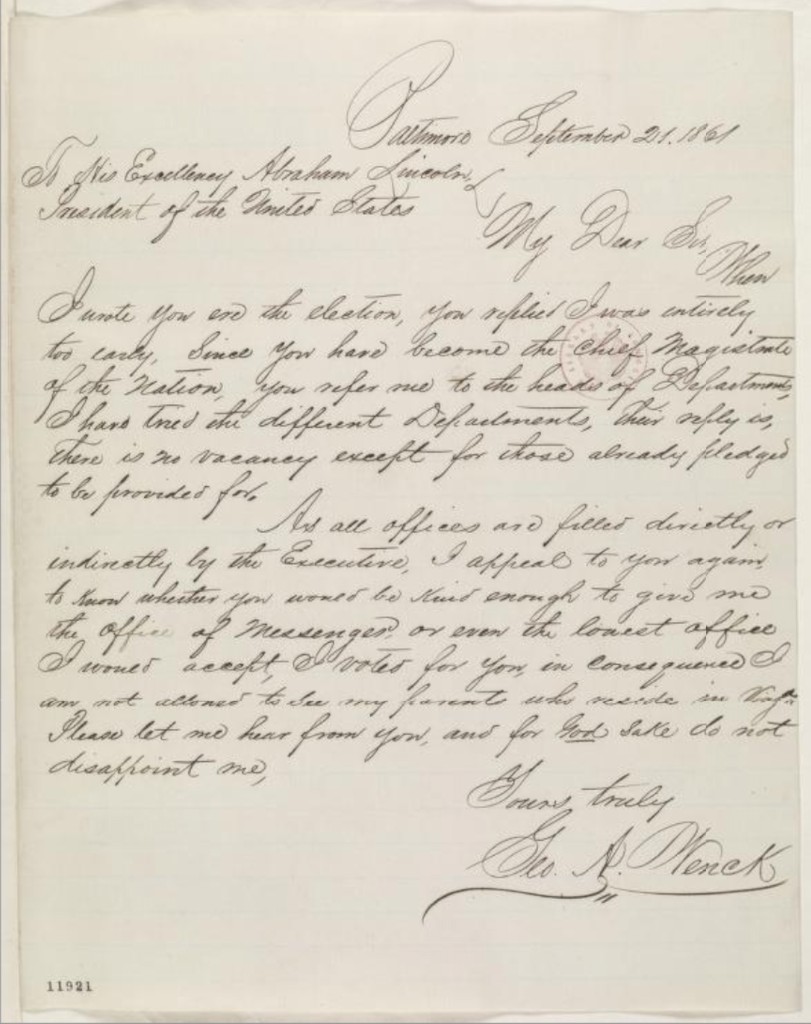 Baltimore September 21. 1861
To His Excellency Abraham Lincoln,
President of the United States
My Dear Sir,
When
I wrote you ere the election, you replied I was entirely
too early, Since you have become the Chief Magistrate
of the Nation, you refer me to the heads of Departments,
I have tried the different Departments, their reply is,
there is no vacancy except for those already pledged
to be provided for.
As all offices are filled directly or
indirectly by the Executive, I appeal to you again,
to know whether you would be kind enough to give me
the office of Messenger, or even the lowest office
I would accept, I voted for you, in consequence I
am not allowed to see my parents who reside in Virga
Please let me hear from you, and for God sake do not
disappoint me,
Yours truly
Geo. A. Wenck
11921